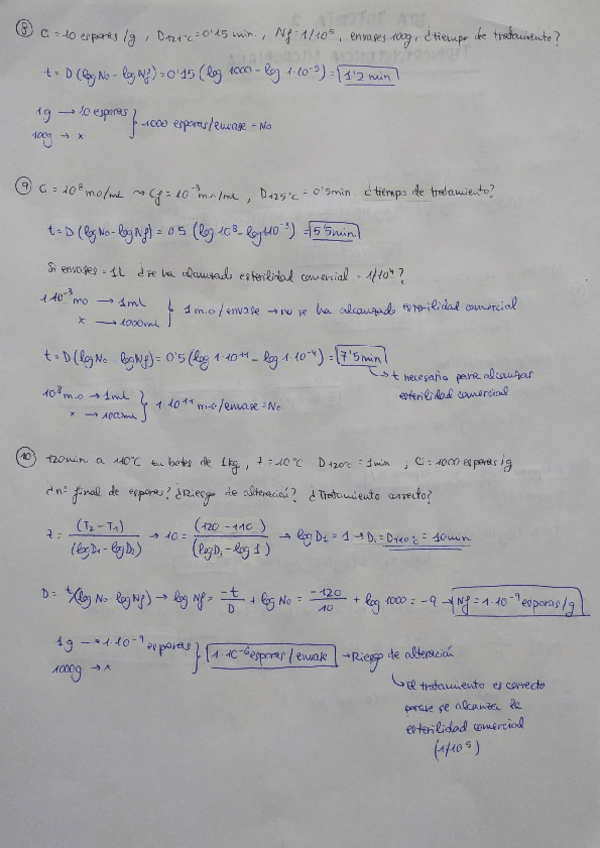 ⑧ C = 10 esporas/g, D121ºC = 0'15 min., Nf = 1/10⁵, envases 100g, ¿tiempo de tratamiento?
t = D (log No - log Nf) = 0'15 (log 1000 - log 1·10⁻⁵) = 1'2 min
1g → 10 esporas
100g → x } 1000 esporas/envase = No
⑨ C = 10⁸ mo/mL → Cf = 10⁻³ mo/mL, D125ºC = 0'5min ¿tiempo de tratamiento?
t = D (log No - log Nf) = 0'5 (log 10⁸ - log 1·10⁻³) = 5'5min
Si envases = 1L ¿se ha alcanzado esterilidad comercial = 1/10⁴?
1·10⁻³ mo → 1mL
x → 1000mL } 1 m.o/envase → no se ha alcanzado esterilidad comercial
t = D (log No - log Nf) = 0'5 (log 1·10¹¹ - log 1·10⁻⁴) = 7'5min
↳ t necesario para alcanzar
esterilidad comercial
10⁸ m.o → 1mL
x → 1000mL } 1·10¹¹ m.o/envase = No
⑩ 120min a 110ºC en botes de 1kg, z = 10ºC D120ºC = 1min, C = 1000 esporas/g
¿nº final de esporas? ¿Riesgo de alteración? ¿Tratamiento correcto?
z = (T2 - T1)/(log D1 - log D2) → 10 = (120 - 110)/(log D1 - log 1) → log D1 = 1 → D1 = D110ºC = 10min
D = t/(log No - log Nf) → log Nf = -t/D + log No = -120/10 + log 1000 = -9 → Nf = 1·10⁻⁹ esporas/g
1g → 1·10⁻⁹ esporas
1000g → x } 1·10⁻⁶ esporas/envase → Riesgo de alteración
↳ El tratamiento es correcto
porque se alcanza la
esterilidad comercial
(1/10⁵)